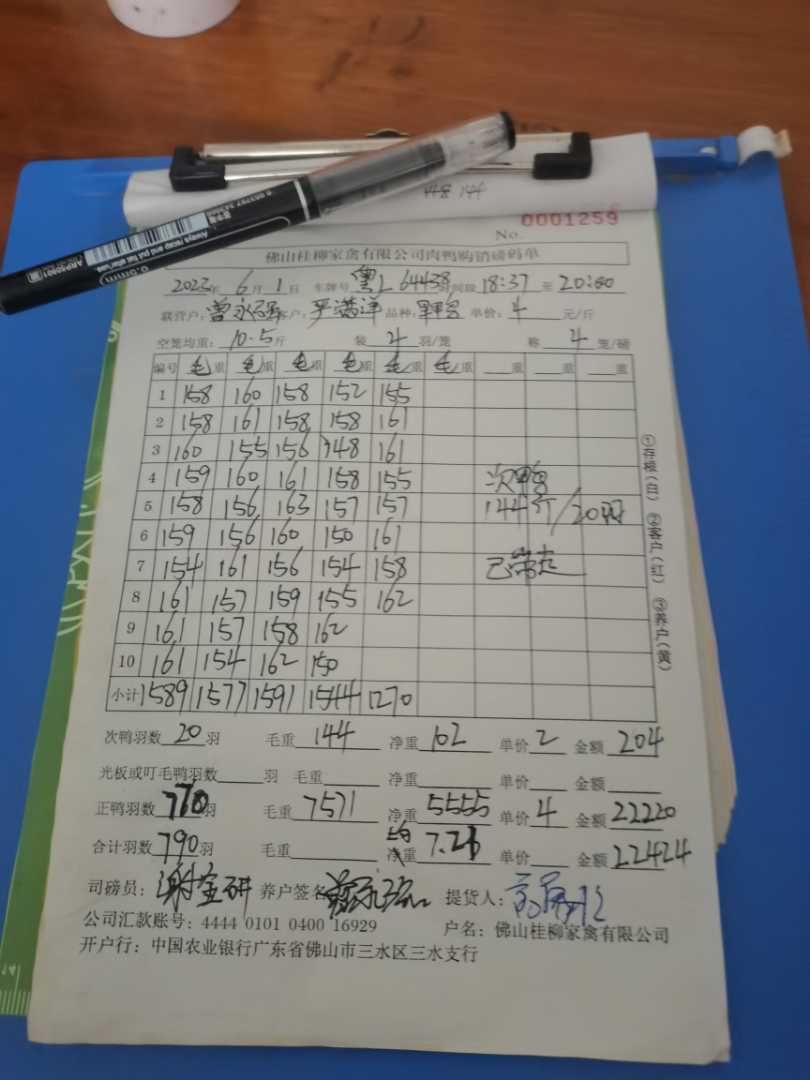 148 144
No. 0001259
佛山桂柳家禽有限公司肉鸭购销磅码单
2023年 6月 1日 车牌号 粤L 64438 时间段 18:37 至 20:00
联营户: 曾永强 客户: 严满洋 品种: 单价: 4 元/斤
空笼均重: 10.5斤 装 4 羽/笼 称 4 笼/磅
编号 毛重 毛重 毛重 毛重 毛重 毛重 重 重 重
1 158 160 158 152 155
2 158 161 158 158 161
3 160 155 156 148 161
4 159 160 161 158 155 次鸭
5 158 156 163 157 157 144斤/20羽
6 159 156 160 150 161
7 154 161 156 154 158 已带走
8 161 157 159 155 162
9 161 157 158 162
10 161 154 162 150
小计 1589 1577 1591 1544 1270
①存根(白) ②客户(红) ③养户(黄)
次鸭羽数 20 羽 毛重 144 净重 102 单价 2 金额 204
光板或叮毛鸭羽数 羽 毛重 净重 单价 金额
正鸭羽数 770 羽 毛重 7571 净重 5555 单价 4 金额 22220
合计羽数 790 羽 毛重 均净重 7.21 单价 金额 22424
司磅员: 谢金研 养户签名 提货人:
公司汇款账号: 4444 0101 0400 16929 户名: 佛山桂柳家禽有限公司
开户行: 中国农业银行广东省佛山市三水区三水支行
0.5mm
ARP50901
Always recap and put flat after use